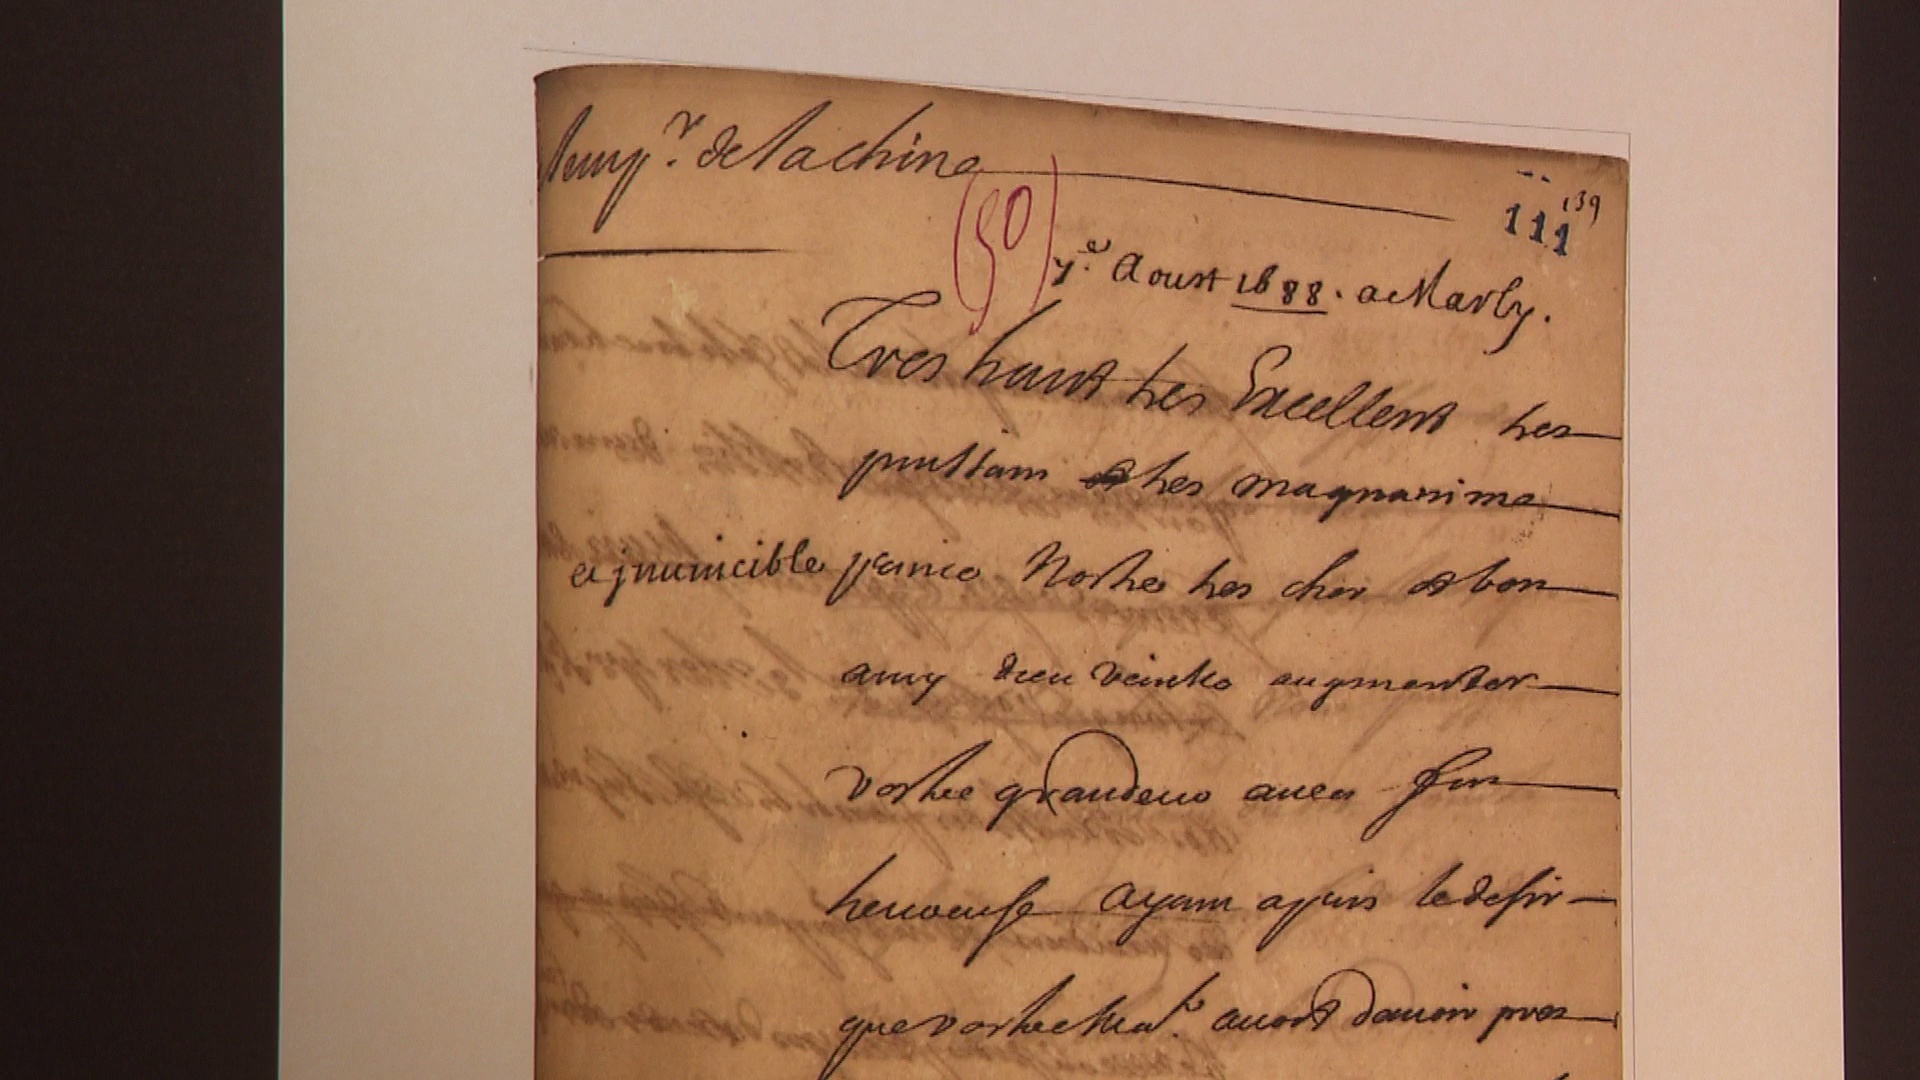 Lempr. de la chine
(50)
139
111
7e. Aoust 1688. a Marly.
Tres haut tres Excellent tres
puissant tres magnanime
et jnuincible prince Nostre tres cher et bon
amy dieu veuille augmenter
vostre grandeur auec fin
heureuse ayant apris le desir
que vostre Mate. auoit dauoir pres